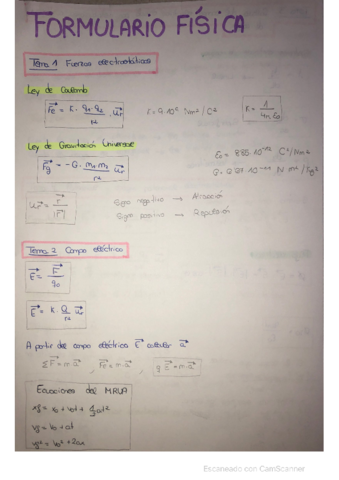 FORMULARIO FÍSICA
Tema 1 Fuerzas electrostáticas
Ley de Coulomb
Fe = K · q1 · q2 / r² · ur
K = 9·10⁹ Nm²/C²
K = 1 / 4πε0
Ley de Gravitación Universal
Fg = -G · m1 m2 / r² · ur
C²/Nm²
N m²/kg²
ur = r / |r|
Signo negativo → Atracción
Signo positivo → Repulsión
Tema 2 Campo eléctrico
E = F / q0
E = K · Q / r² ur
A partir del campo eléctrico E calcular a
ΣF = m·a , Fe = m·a , q·E = m·a
Ecuaciones del MRUA
v0t + ½at²
vf = v0 + at
vf² = v0² + 2ax
Escaneado con CamScanner